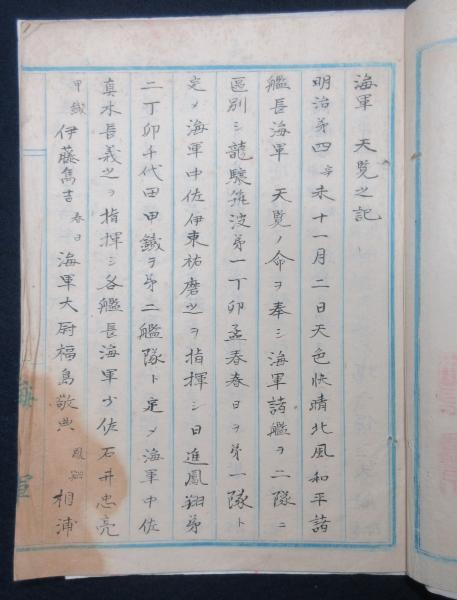 海軍 天覧之記
明治第四辛未十一月二日天色快晴北風和平諸
艦長海軍 天覧ノ命ヲ奉シ海軍諸艦ヲ二隊ニ
區別シ龍驤筑波第一丁卯孟春春日ヲ第一隊ト
定メ海軍中佐伊東祐麿之ヲ指揮シ日進鳳翔第
二丁卯千代田甲鐵ヲ第二艦隊ト定メ海軍中佐
真木長義之ヲ指揮シ各艦長海軍少佐石井忠亮
甲鐵伊藤雋吉春日海軍大尉福島敬典鳳翔相浦
海軍